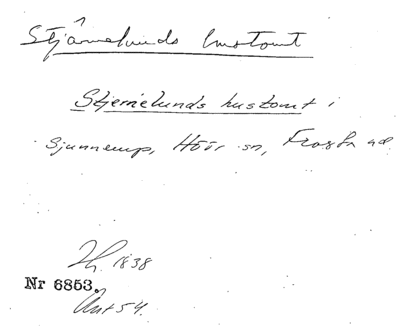 Stjärnelunds hustomt
Stjernelunds hustomt i
Sjunnerup, Höör sn, Frosta hd
Th. 1838
Nr 6853.
Ant 54.